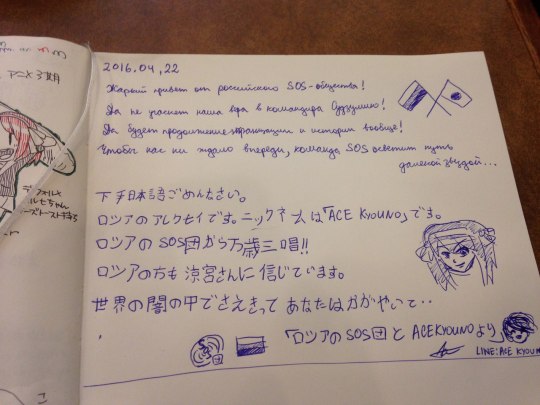 アニメ3期
2016.04,22
Жаркий привет от российского SOS-общества!
Да не угаснет наша вера в командира Судзумию!
Да будет продолжение экранизации и истории вообще!
Чтобы нас ни ждало впереди, команда SOS осветит путь
далекой звездой...
下手日本語ごめんなさい。
ロシアのアレクセイです。ニックネームは「ACE KYOUNO」です。
ロシアのSOS団から万歳三唱!!
ロシアの方も涼宮さんに信じています。
世界の闇の中でさえきって あなたはかがやいて・・
「ロシアのSOS団と ACE KYOUNOより」
LINE: ACE KYOUN